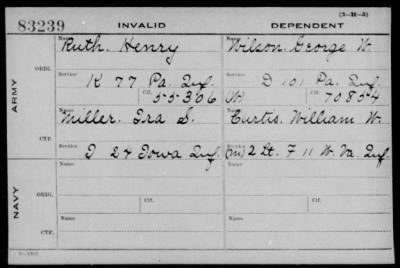 (3-H-5)
83239 INVALID DEPENDENT
Name Name
Ruth, Henry Wilson, George W.
ORIG. Service Service
K 77 Pa. Inf. D 101 Pa. Inf.
Ctf. 55306 (W) Ctf. 70854
ARMY
Name Name
Miller, Ira S. Curtis, William W.
CTF. Service Service
I 24 Iowa Inf. (m) 2 Lt. F 11 W. Va. Inf.
NAVY
Name Name
ORIG. Service Service
Ctf. Ctf.
Name Name
CTF. Service Service